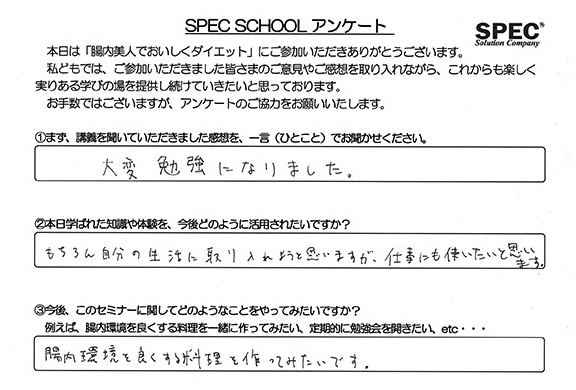 SPEC SCHOOL アンケート
SPEC®
Solution Company
本日は「腸内美人でおいしくダイエット」にご参加いただきありがとうございます。
私どもでは、ご参加いただきました皆さまのご意見やご感想を取り入れながら、これからも楽しく
実りある学びの場を提供し続けていきたいと思っております。
お手数ではございますが、アンケートのご協力をお願いいたします。
①まず、講義を聞いていただきました感想を、一言（ひとこと）でお聞かせください。
大変 勉強になりました。
②本日学ばれた知識や体験を、今後どのように活用されたいですか？
もちろん自分の生活に取り入れようと思いますが、仕事にも使いたいと思い
ます。
③今後、このセミナーに関してどのようなことをやってみたいですか？
例えば、腸内環境を良くする料理を一緒に作ってみたい、定期的に勉強会を開きたい、etc・・・
腸内環境を良くする料理を作ってみたいです。